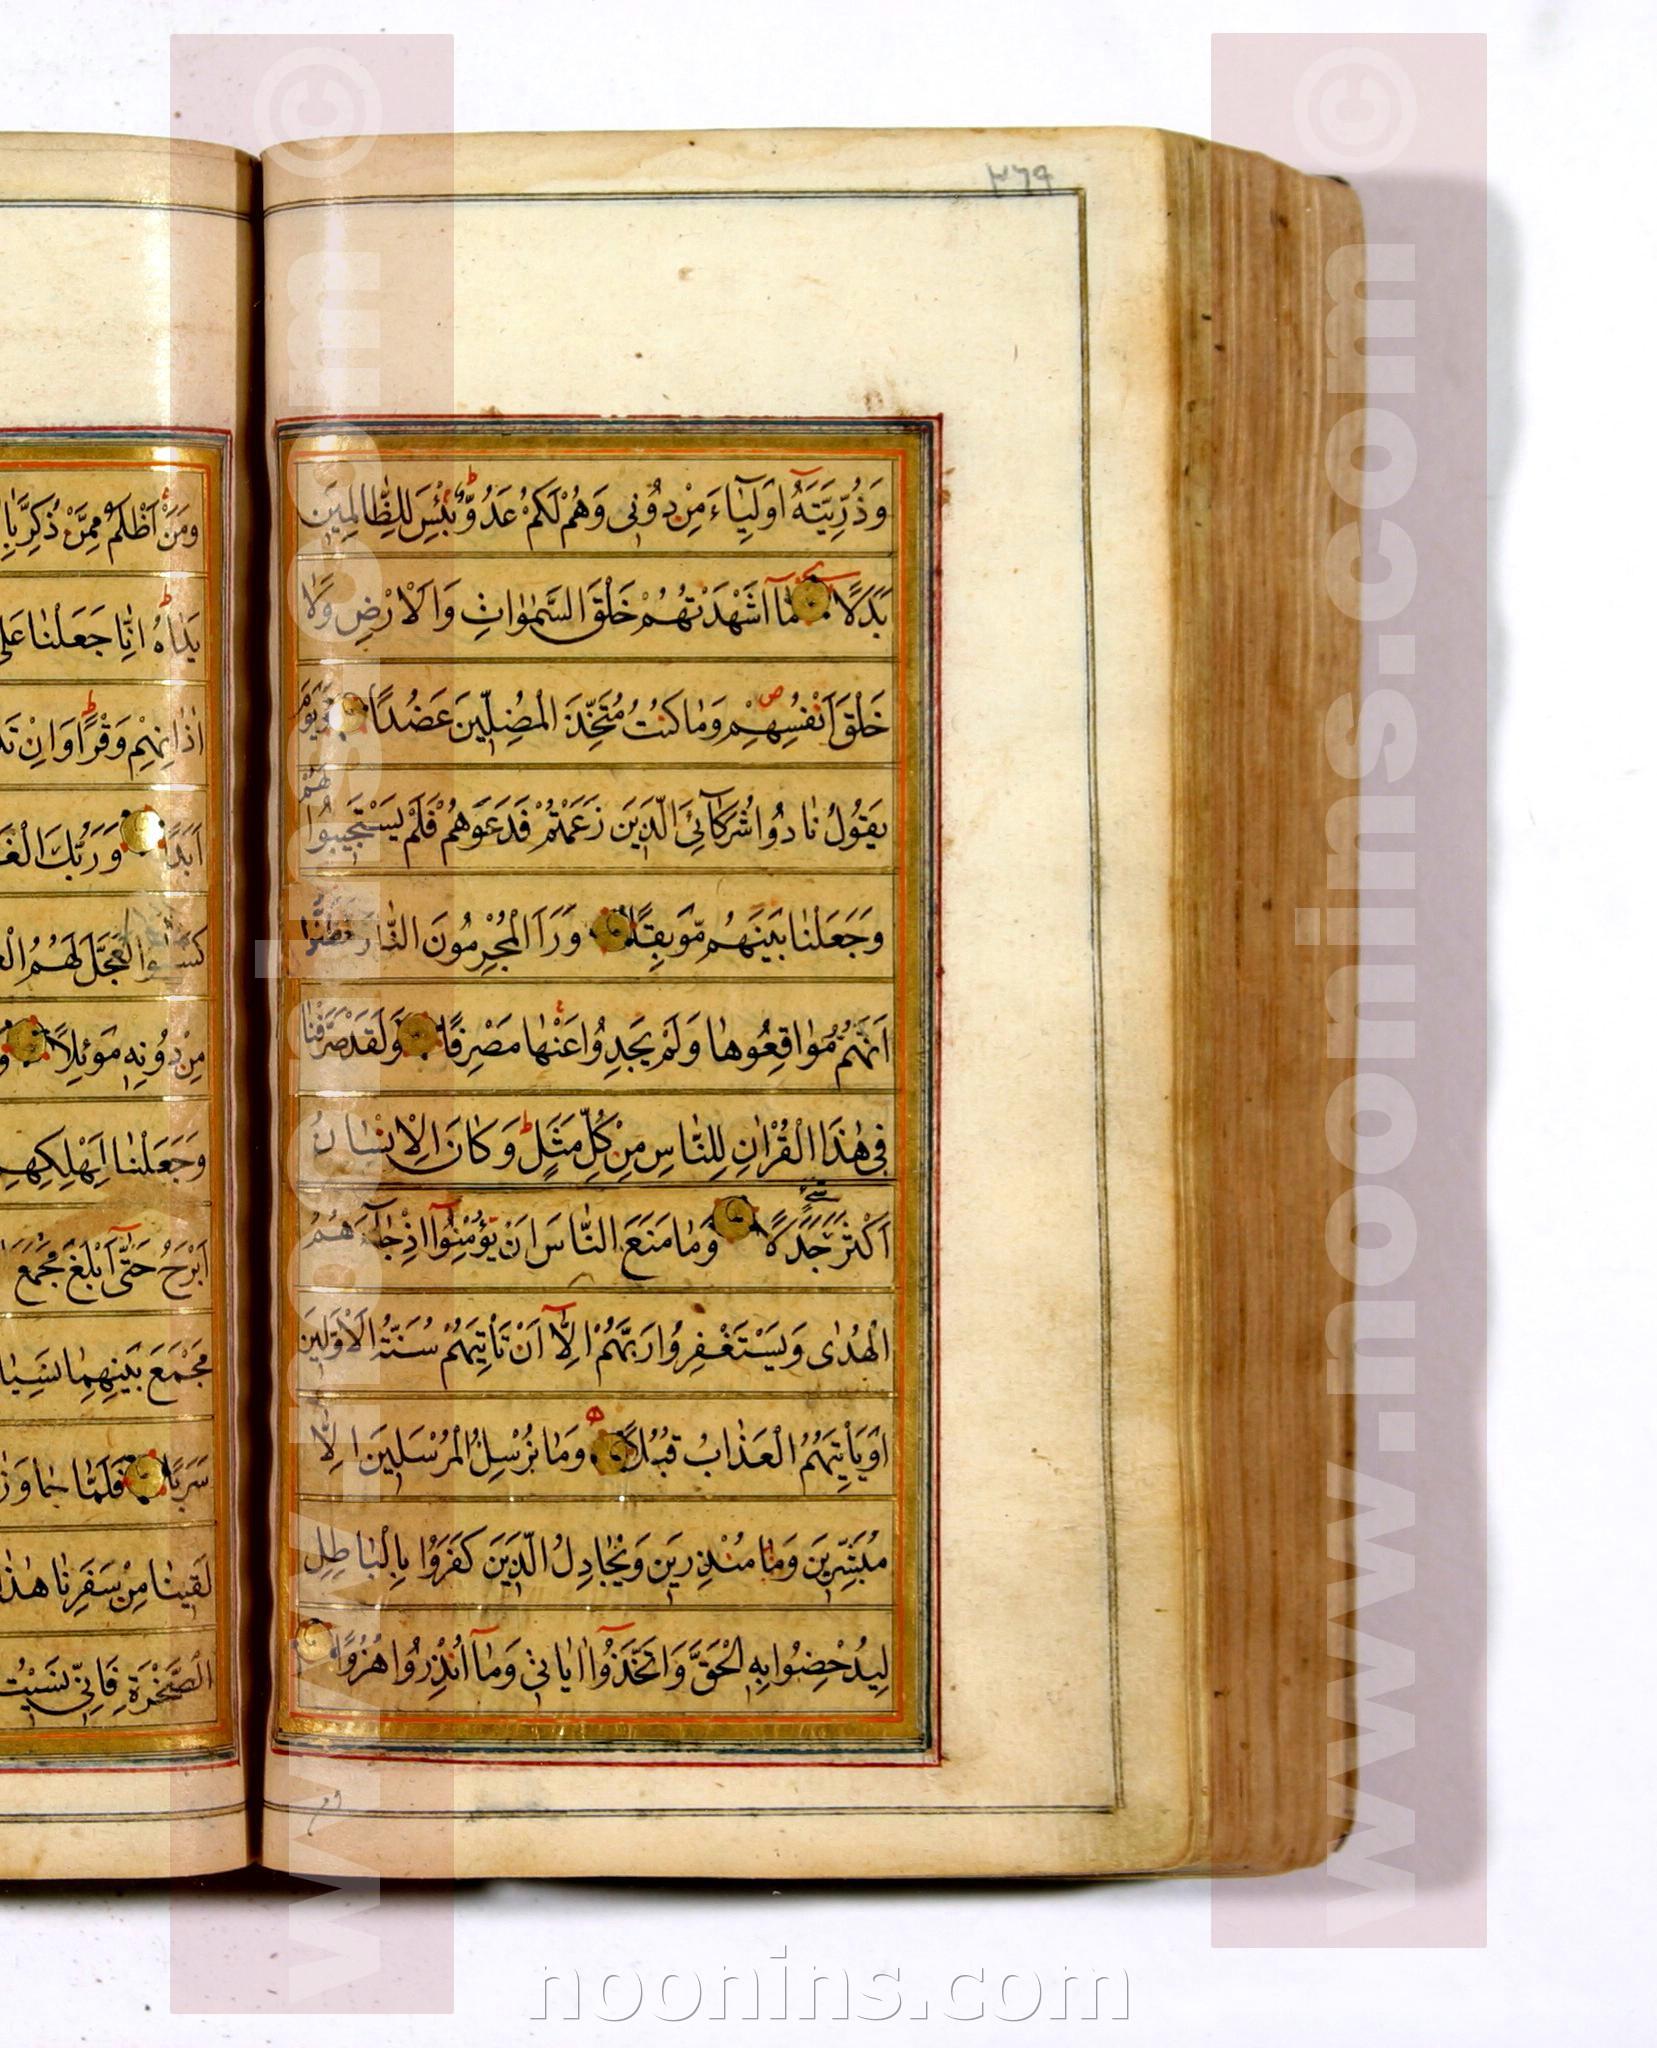 ٣٦٩
وَذُرِّيَّتَهُ اَوْلِيَآءَ مِنْ دُوْنِي وَهُمْ لَكُمْ عَدُوٌّ بِئْسَ لِلظَّالِمِيْنَ
بَدَلًا مَآ اَشْهَدْتُهُمْ خَلْقَ السَّمٰوَاتِ وَالْاَرْضِ وَلَا
خَلْقَ اَنْفُسِهِمْ وَمَا كُنْتُ مُتَّخِذَ الْمُضِلِّيْنَ عَضُدًا وَيَوْمَ
يَقُوْلُ نَادُوْا شُرَكَآئِيَ الَّذِيْنَ زَعَمْتُمْ فَدَعَوْهُمْ فَلَمْ يَسْتَجِيْبُوْا لَهُمْ
وَجَعَلْنَا بَيْنَهُمْ مَوْبِقًا وَرَاَ الْمُجْرِمُوْنَ النَّارَ فَظَنُّوْا
اَنَّهُمْ مُوَاقِعُوْهَا وَلَمْ يَجِدُوْا عَنْهَا مَصْرِفًا وَلَقَدْ صَرَّفْنَا
فِي هٰذَا الْقُرْاٰنِ لِلنَّاسِ مِنْ كُلِّ مَثَلٍ وَكَانَ الْاِنْسَانُ
اَكْثَرَ شَيْءٍ جَدَلًا وَمَا مَنَعَ النَّاسَ اَنْ يُؤْمِنُوْآ اِذْ جَآءَهُمُ
الْهُدٰى وَيَسْتَغْفِرُوْا رَبَّهُمْ اِلَّآ اَنْ تَأْتِيَهُمْ سُنَّةُ الْاَوَّلِيْنَ
اَوْ يَأْتِيَهُمُ الْعَذَابُ قُبُلًا وَمَا نُرْسِلُ الْمُرْسَلِيْنَ اِلَّا
مُبَشِّرِيْنَ وَمُنْذِرِيْنَ وَيُجَادِلُ الَّذِيْنَ كَفَرُوْا بِالْبَاطِلِ
لِيُدْحِضُوْا بِهِ الْحَقَّ وَاتَّخَذُوْآ اٰيَاتِي وَمَآ اُنْذِرُوْا هُزُوًا
وَمَنْ اَظْلَمُ مِمَّنْ ذُكِّرَ بِاٰ
يَدَاهُ اِنَّا جَعَلْنَا عَلٰى
اٰذَانِهِمْ وَقْرًا وَاِنْ تَدْ
اَبَدًا وَرَبُّكَ الْغَ
كَسَبُوْا لَعَجَّلَ لَهُمُ الْعَ
مِنْ دُوْنِهِ مَوْئِلًا وَ
وَجَعَلْنَا لِمَهْلِكِهِمْ
اَبْرَحُ حَتّٰى اَبْلُغَ مَجْمَعَ
مَجْمَعَ بَيْنِهِمَا نَسِيَا
سَرَبًا فَلَمَّا جَاوَزَ
لَقِيْنَا مِنْ سَفَرِنَا هٰذَا
الصَّخْرَةِ فَاِنِّي نَسِيْتُ
www.noonins.com ©
www.noonins.com ©
noonins.com